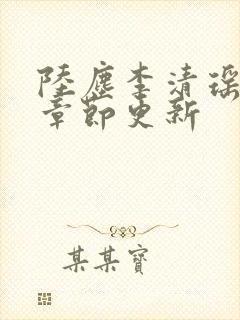 陸塵李清瑶
章節更新
某某寶